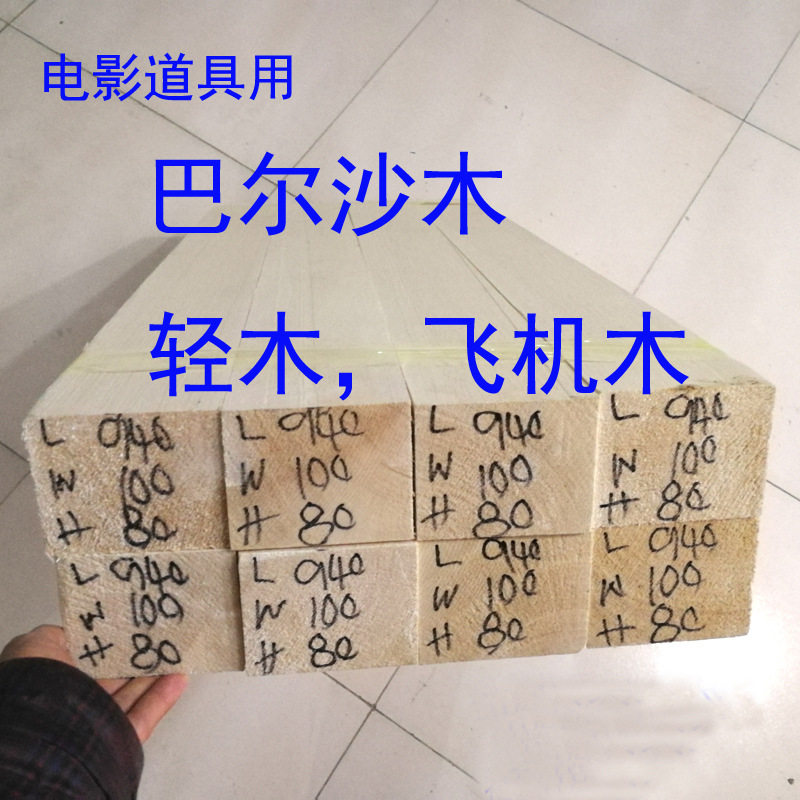 电影道具用
巴尔沙木
轻木，飞机木
L 940
W 100
H 80
L 940
W 100
H 80
L 940
W 100
H 80
L 940
W 100
H 80
L 940
W 100
H 80
L 940
W 100
H 80
L 940
W 100
H 80
L 940
W 100
H 80